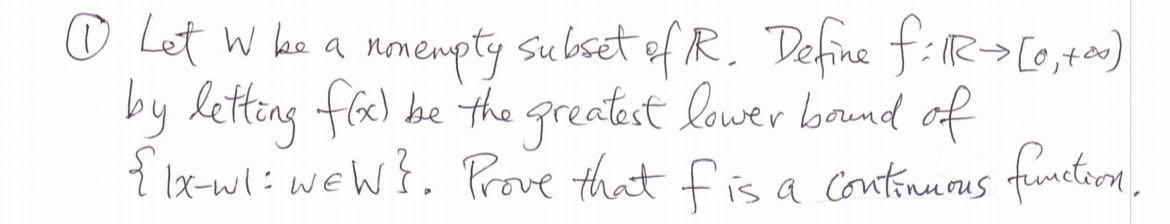 ① Let W be a nonempty subset of ℝ. Define f:ℝ→[0,+∞)
by letting f(x) be the greatest lower bound of
{|x-w|: w∈W}. Prove that f is a continuous function.